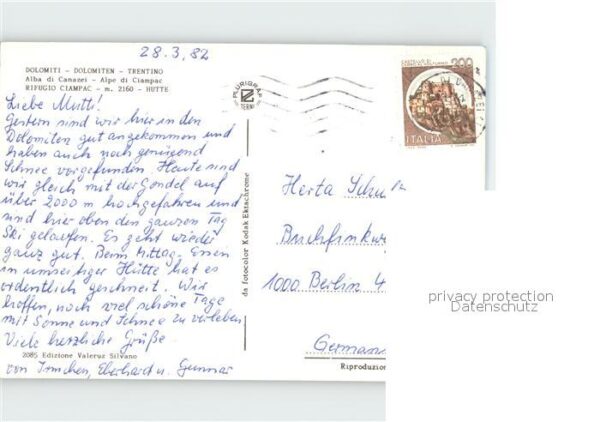 28.3.82
DOLOMITI - DOLOMITEN - TRENTINO
Alba di Canazei - Alpe di Ciampac
RIFUGIO CIAMPAC - m. 2160 - HUTTE
Liebe Mutti!
Gestern sind wir hier in den
Dolomiten gut angekommen und
haben auch noch genügend
Schnee vorgefunden. Heute sind
wir gleich mit der Gondel auf
über 2000 m hochgefahren und
sind hier oben den ganzen Tag
Ski gelaufen. Es geht wieder
ganz gut. Beim Mittag-Essen
in umseitiger Hütte hat es
ordentlich geschneit. Wir
hoffen, noch viel schöne Tage
mit Sonne und Schnee zu verleben
Viele herzliche Grüße
2085 Edizione Valeruz Silvano
von Irmchen, Eberhard u. Gunnar
PLURIGRAF
TERNI
da fotocolor Kodak Ektachrome
200
ITALIA
Herta Schu
Buchfinkw
1000 Berlin 4
German
Riproduzio
privacy protection
Datenschutz